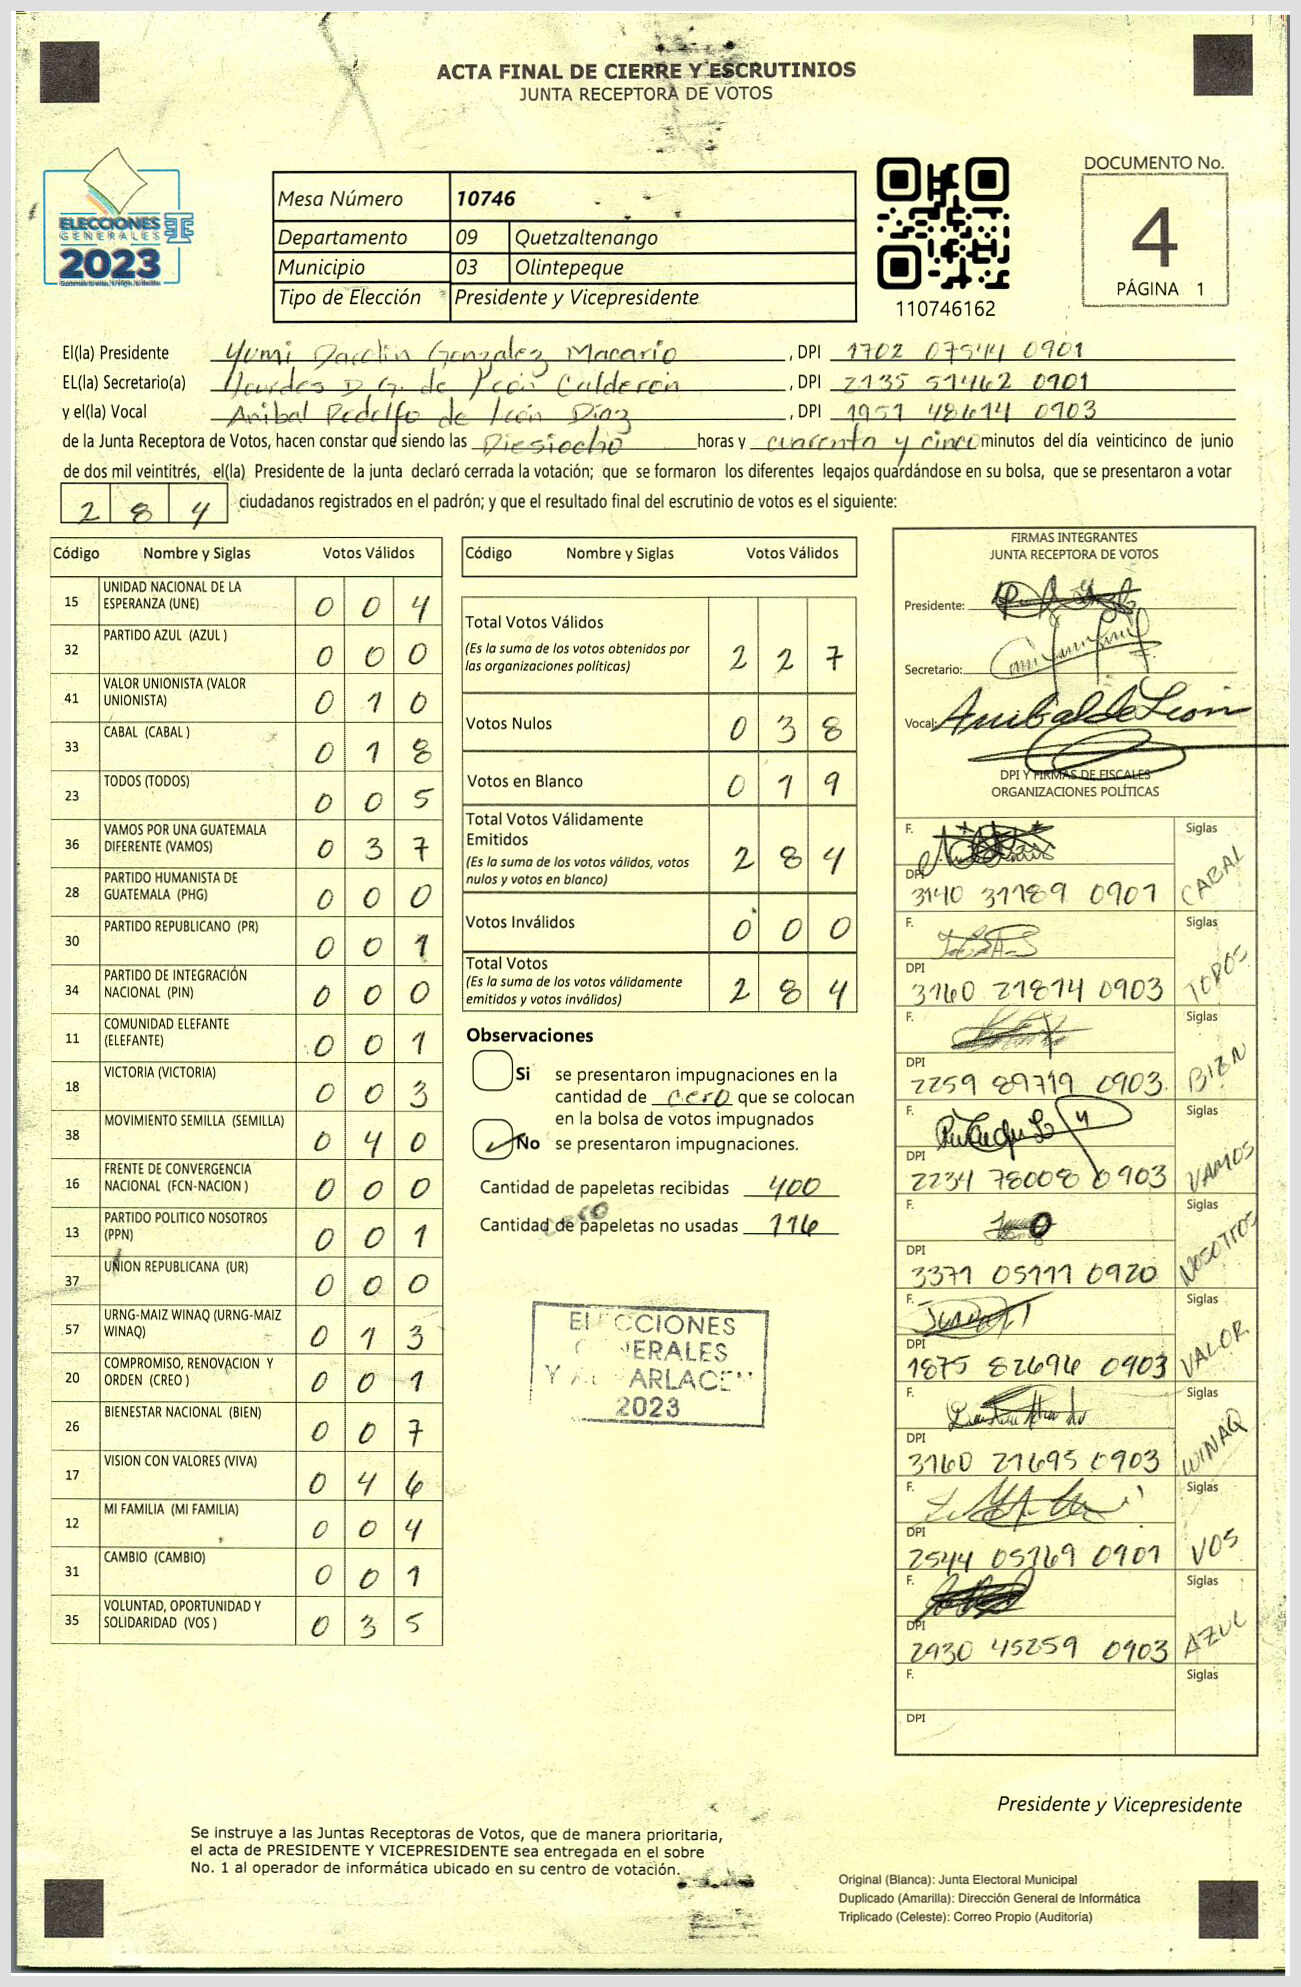 ACTA FINAL DE CIERRE Y ESCRUTINIOS
JUNTA RECEPTORA DE VOTOS
ELECCIONES
GENERALES
2023
Mesa Número 10746
Departamento 09 Quetzaltenango
Municipio 03 Olintepeque
Tipo de Elección Presidente y Vicepresidente
110746162
DOCUMENTO No.
4
PÁGINA 1
El(la) Presidente Yumi Darolin Gonzalez Macario, DPI 1702 07544 0901
EL(la) Secretario(a) Lourdes D. G. de León Calderón, DPI 2135 51462 0901
y el(la) Vocal Anibal Rodolfo de León Díaz, DPI 1951 48614 0903
de la Junta Receptora de Votos, hacen constar que siendo las Diesiocho horas y cuarenta y cinco minutos del día veinticinco de junio
de dos mil veintitrés, el(la) Presidente de la junta declaró cerrada la votación; que se formaron los diferentes legajos guardándose en su bolsa, que se presentaron a votar
2 8 4 ciudadanos registrados en el padrón; y que el resultado final del escrutinio de votos es el siguiente:
Código Nombre y Siglas Votos Válidos
15 UNIDAD NACIONAL DE LA ESPERANZA (UNE) 0 0 4
32 PARTIDO AZUL (AZUL ) 0 0 0
41 VALOR UNIONISTA (VALOR UNIONISTA) 0 1 0
33 CABAL (CABAL ) 0 1 8
23 TODOS (TODOS) 0 0 5
36 VAMOS POR UNA GUATEMALA DIFERENTE (VAMOS) 0 3 7
28 PARTIDO HUMANISTA DE GUATEMALA (PHG) 0 0 0
30 PARTIDO REPUBLICANO (PR) 0 0 1
34 PARTIDO DE INTEGRACIÓN NACIONAL (PIN) 0 0 0
11 COMUNIDAD ELEFANTE (ELEFANTE) 0 0 1
18 VICTORIA (VICTORIA) 0 0 3
38 MOVIMIENTO SEMILLA (SEMILLA) 0 4 0
16 FRENTE DE CONVERGENCIA NACIONAL (FCN-NACION ) 0 0 0
13 PARTIDO POLITICO NOSOTROS (PPN) 0 0 1
37 UNION REPUBLICANA (UR) 0 0 0
57 URNG-MAIZ WINAQ (URNG-MAIZ WINAQ) 0 1 3
20 COMPROMISO, RENOVACION Y ORDEN (CREO ) 0 0 1
26 BIENESTAR NACIONAL (BIEN) 0 0 7
17 VISION CON VALORES (VIVA) 0 4 6
12 MI FAMILIA (MI FAMILIA) 0 0 4
31 CAMBIO (CAMBIO) 0 0 1
35 VOLUNTAD, OPORTUNIDAD Y SOLIDARIDAD (VOS ) 0 3 5
Código Nombre y Siglas Votos Válidos
Total Votos Válidos 2 2 7
(Es la suma de los votos obtenidos por
las organizaciones políticas)
Votos Nulos 0 3 8
Votos en Blanco 0 1 9
Total Votos Válidamente
Emitidos 2 8 4
(Es la suma de los votos válidos, votos
nulos y votos en blanco)
Votos Inválidos 0 0 0
Total Votos 2 8 4
(Es la suma de los votos válidamente
emitidos y votos inválidos)
Observaciones
Si se presentaron impugnaciones en la
cantidad de cero que se colocan
en la bolsa de votos impugnados
No se presentaron impugnaciones.
Cantidad de papeletas recibidas 400
cero
Cantidad de papeletas no usadas 116
ELECCIONES
GENERALES
2023
FIRMAS INTEGRANTES
JUNTA RECEPTORA DE VOTOS
Presidente:
Secretario:
Vocal: Anibal de León
DPI Y FIRMAS DE FISCALES
ORGANIZACIONES POLÍTICAS
F. Siglas
DPI 3140 31189 0901 CABAL
F. Siglas
DPI 3160 21814 0903 TODOS
F. Siglas
DPI 2259 89719 0903 BIEN
F. Siglas
DPI 2234 78008 0903 VAMOS
F. Siglas
DPI 3371 05111 0920 NOSOTROS
F. Siglas
DPI 1875 82696 0903 VALOR
F. Siglas
DPI 3160 21695 0903 WINAQ
F. Siglas
DPI 2544 05169 0901 VOS
F. Siglas
DPI 2930 45259 0903 AZUL
F. Siglas
DPI
Presidente y Vicepresidente
Se instruye a las Juntas Receptoras de Votos, que de manera prioritaria,
el acta de PRESIDENTE Y VICEPRESIDENTE sea entregada en el sobre
No. 1 al operador de informática ubicado en su centro de votación.
Original (Blanca): Junta Electoral Municipal
Duplicado (Amarilla): Dirección General de Informática
Triplicado (Celeste): Correo Propio (Auditoría)